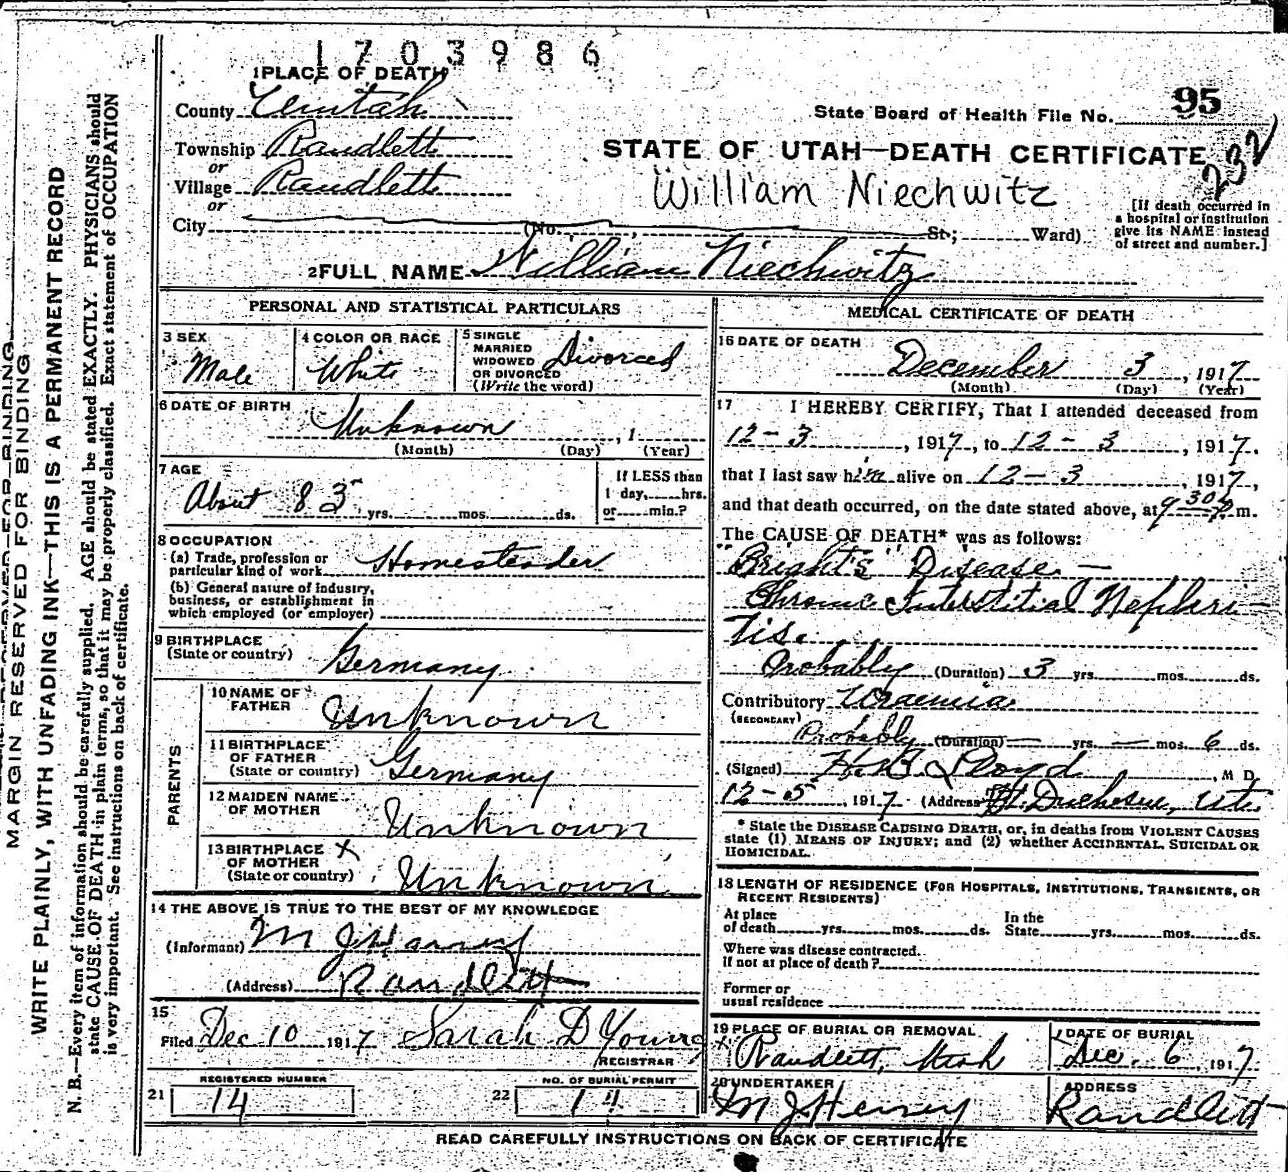 1703986
1 PLACE OF DEATH
County Uintah
State Board of Health File No. 95
232
Township Randlett
or
Village Randlett
or
City (No. , St; Ward)
STATE OF UTAH—DEATH CERTIFICATE
William Niechwitz
[If death occurred in
a hospital or institution
give its NAME instead
of street and number.]
2 FULL NAME William Niechwitz
PERSONAL AND STATISTICAL PARTICULARS
3 SEX
Male
4 COLOR OR RACE
White
5 SINGLE
MARRIED
WIDOWED
OR DIVORCED
(Write the word)
Divorced
6 DATE OF BIRTH
Unknown , 1
(Month) (Day) (Year)
7 AGE
About 83 yrs. mos. ds.
If LESS than
1 day, hrs.
or min.?
8 OCCUPATION
(a) Trade, profession or
particular kind of work Homesteader
(b) General nature of industry,
business, or establishment in
which employed (or employer)
9 BIRTHPLACE
(State or country) Germany
PARENTS
10 NAME OF
FATHER Unknown
11 BIRTHPLACE
OF FATHER
(State or country) Germany
12 MAIDEN NAME
OF MOTHER Unknown
13 BIRTHPLACE X
OF MOTHER
(State or country) Unknown
14 THE ABOVE IS TRUE TO THE BEST OF MY KNOWLEDGE
(Informant) M J Harvey
(Address) Randlett
15
Filed Dec 10 1917 Sarah D Young
REGISTRAR
REGISTERED NUMBER
21 14
NO. OF BURIAL PERMIT
22 14
MEDICAL CERTIFICATE OF DEATH
16 DATE OF DEATH
December 3, 1917
(Month) (Day) (Year)
17 I HEREBY CERTIFY, That I attended deceased from
12-3, 1917, to 12-3, 1917.
that I last saw him alive on 12-3, 1917,
and that death occurred, on the date stated above, at 9 30 P m.
The CAUSE OF DEATH* was as follows:
"Bright's" Disease—
Chronic Interstitial Nephri-
tis.
Probably (Duration) 3 yrs. mos. ds.
Contributory Uraemia
(SECONDARY)
Probably (Duration) — yrs. — mos. 6 ds.
(Signed) H.B. Lloyd, M D
12-5, 1917 (Address) Ft. Duchesne, Ut.
* State the DISEASE CAUSING DEATH, or, in deaths from VIOLENT CAUSES
state (1) MEANS OF INJURY; and (2) whether ACCIDENTAL, SUICIDAL OR
HOMICIDAL.
18 LENGTH OF RESIDENCE (FOR HOSPITALS, INSTITUTIONS, TRANSIENTS, OR
RECENT RESIDENTS)
At place
of death yrs. mos. ds.
In the
State yrs. mos. ds.
Where was disease contracted.
If not at place of death?
Former or
usual residence
19 PLACE OF BURIAL OR REMOVAL
Randlett, Utah
DATE OF BURIAL
Dec. 6, 1917
20 UNDERTAKER
M J Hervey
ADDRESS
Randlett
READ CAREFULLY INSTRUCTIONS ON BACK OF CERTIFICATE
MARGIN RESERVED FOR BINDING
WRITE PLAINLY, WITH UNFADING INK—THIS IS A PERMANENT RECORD
N. B.—Every item of information should be carefully supplied. AGE should be stated EXACTLY. PHYSICIANS should
state CAUSE OF DEATH in plain terms, so that it may be properly classified. Exact statement of OCCUPATION
is very important. See instructions on back of certificate.